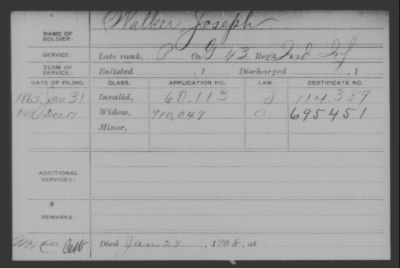 NAME OF SOLDIER: Walker, Joseph
SERVICE: Late rank, P Co. G 43 Reg't Ind Inf
TERM OF SERVICE: Enlisted , 1 Discharged , 1
DATE OF FILING. CLASS. APPLICATION NO. LAW. CERTIFICATE NO.
1865 Jan 31 Invalid, 60,113 114,389
Dec. 17 Widow, 910,049 695451
Minor,
ADDITIONAL SERVICES:
REMARKS:
Died Jan 29, 1908, at